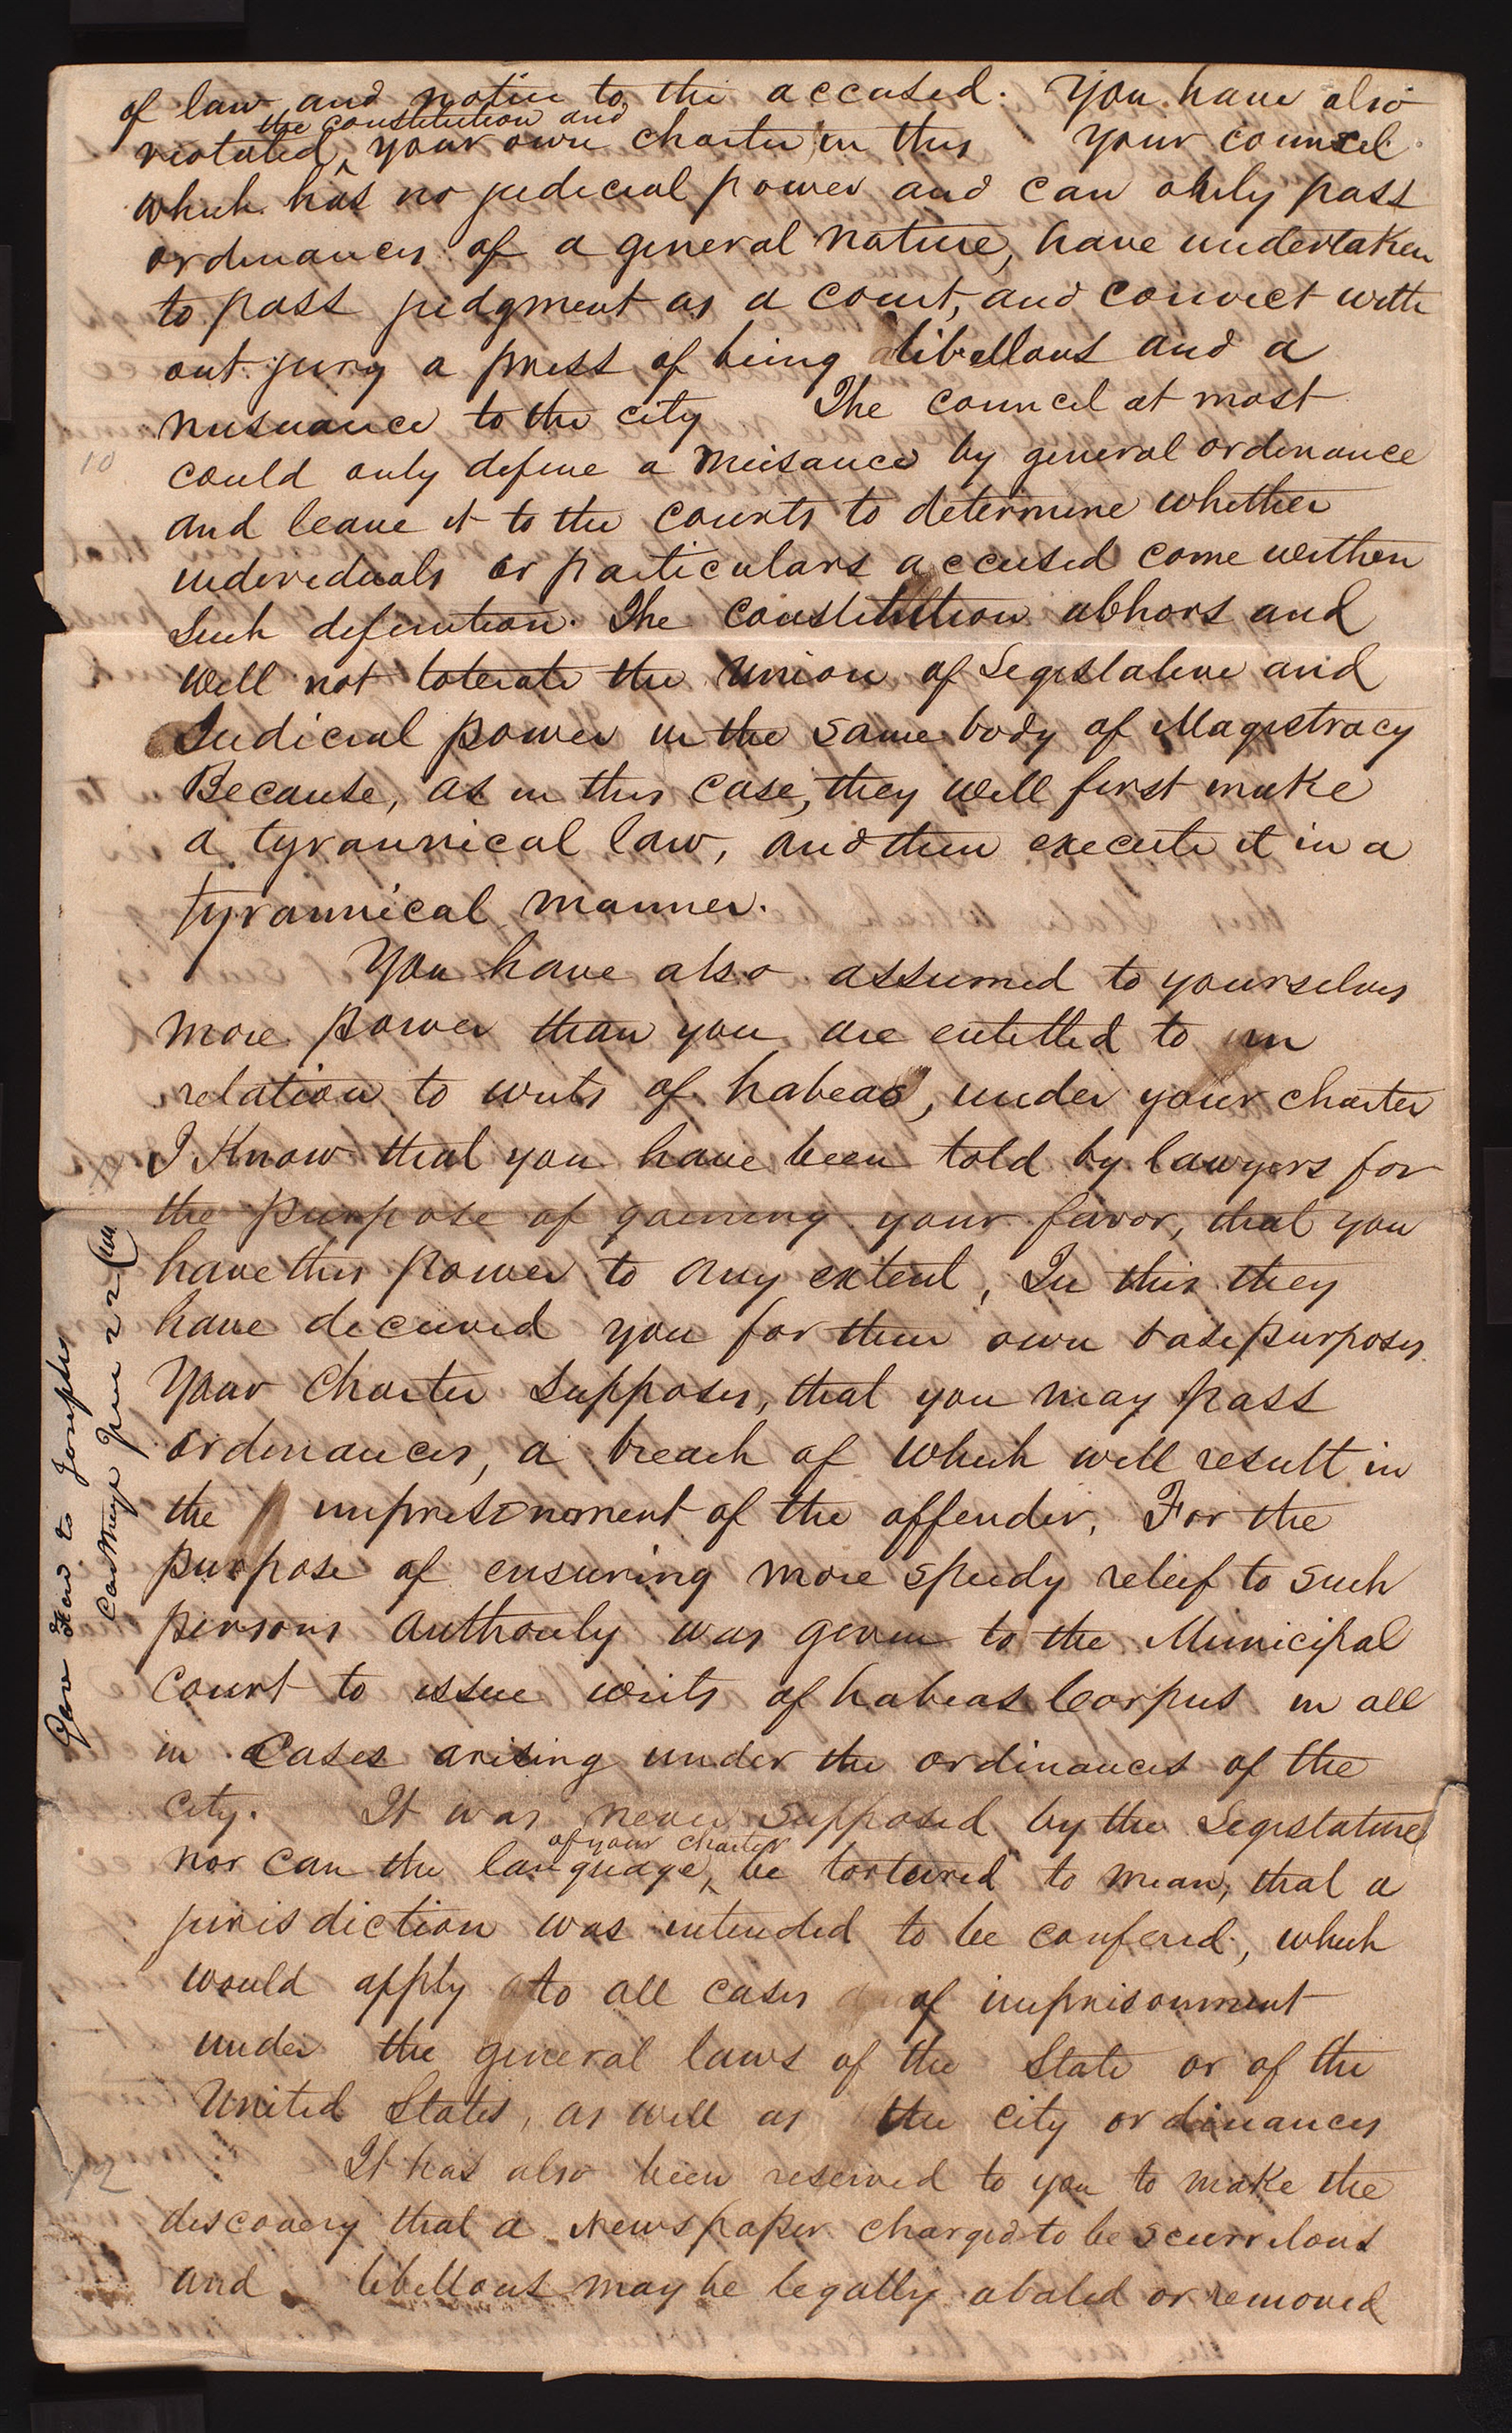 of law and notice to the accused. You have also
the constitution and
violated ^ your own charter in this Your council
which has no judicial power and can only pass
ordinances of a general nature, have undertaken
to pass judgment as a court, and convict with
out jury a press of being libellous and a
nusuance to the city The council at most
could only define a nuisance by general ordinance
and leave it to the courts to determine whether
individuals or particulars accused come within
such definition. The constitution abhors and
will not tolerate the union of Legislative and
Judicial power in the same body of Magistracy
Because, as in this case, they will first make
a tyrannical law, and then execute it in a
tyrannical manner.
You have also assumed to yourselves
more power than you are entitled to in
relation to writs of habeas, under your charter
I Know that you have been told by lawyers for
the purpose of gaining your favor, that you
have this power to any extent, In this they
have deceived you for their own base purposes
Your Charter supposes, that you may pass
ordinances, a breach of which will result in
the imprisonment of the offender. For the
purpose of ensuring more speedy releif to such
persons authority was given to the Municipal
Court to issue writs of habeas Corpus in all
in Cases arising under the ordinances of the
city. It was never supposed by the Legislature
of your charter
nor can the language ^ be tortured to mean, that a
jurisdiction was intended to be confered, which
would apply to all cases of imprisonment
under the general laws of the State or of the
United States, as well as the city ordinances
It has also been reserved to you to make the
discovery that a Newspaper charged to be scurrilous
and libellous may be legally abated or removed
10
12
Gov Ford to Joseph
Carthage June 22